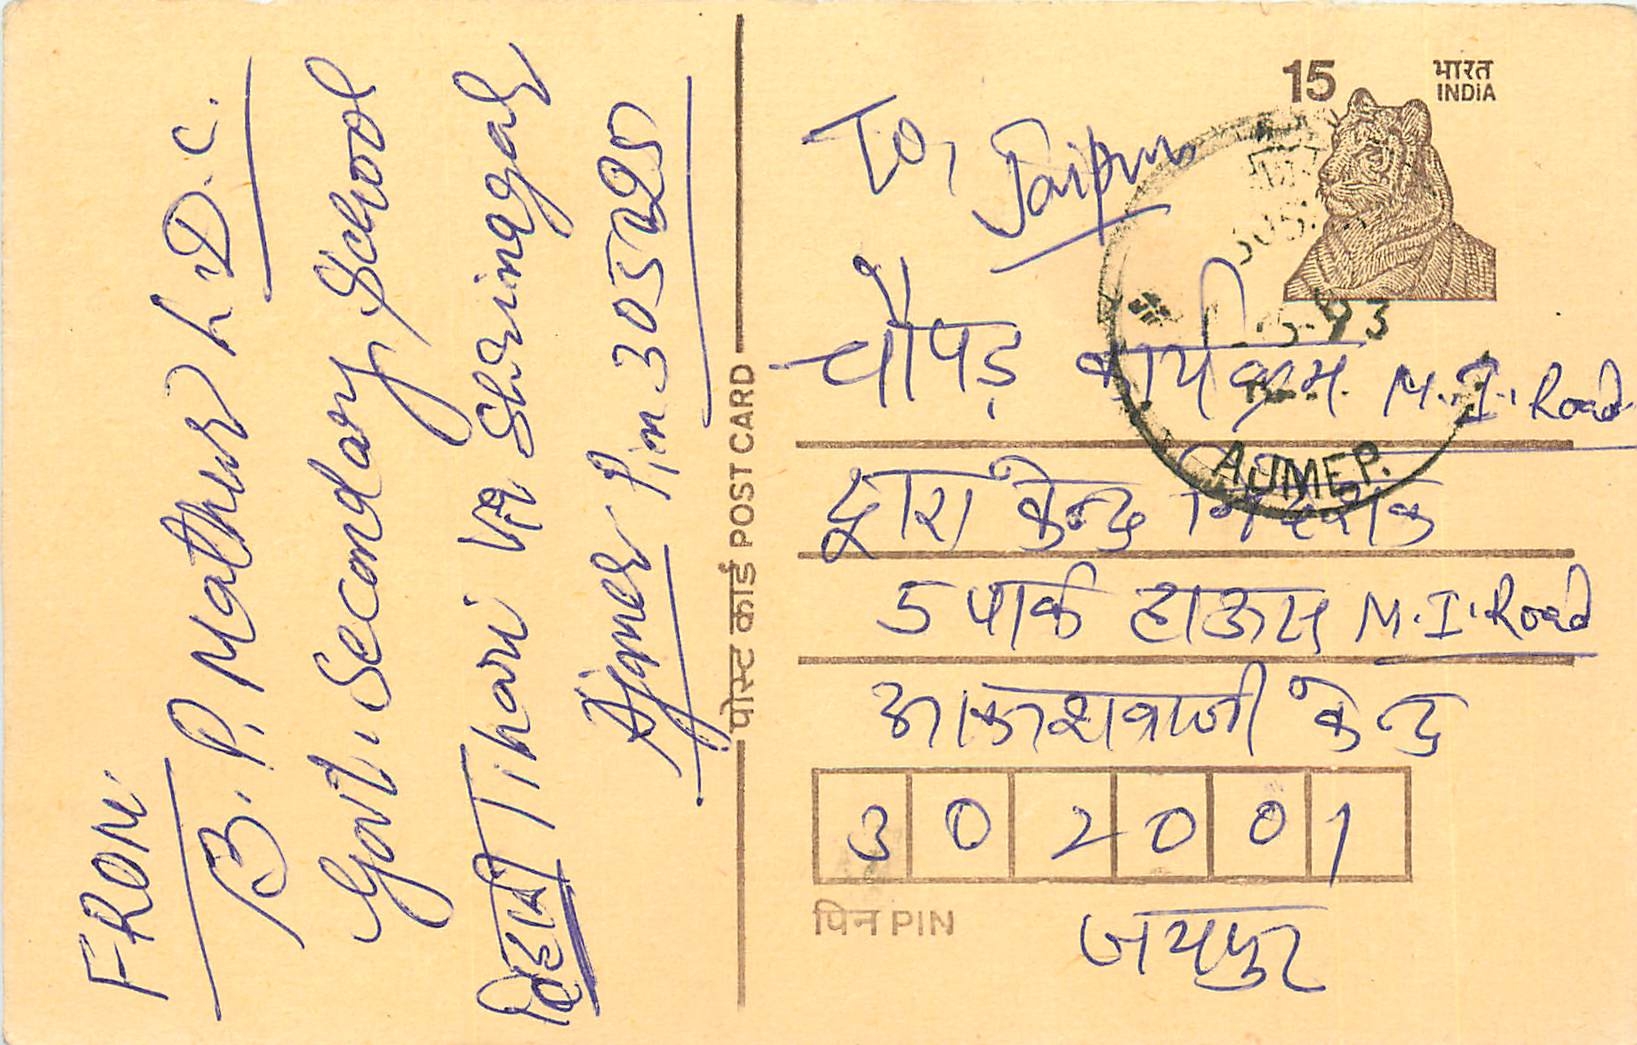 FROM:
B. P. Mathur L.D.C.
Govt. Secondary School
तिहारी Tihari Via Shrinagar
Ajmer Pin 305025
पोस्ट कार्ड POST CARD
15 भारत
INDIA
To, Jaipur
चौपड़ कार्यक्रम. M.I. Road
द्वारा केन्द्र निदेशक
5 पार्क हाऊस M.I. Road
आकाशवाणी केन्द्र
302001
पिन PIN
जयपुर
AJMER.